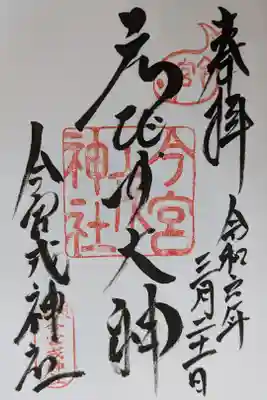 奉拝
令和六年
三月二十一日
ゑびす大神
今宮戎神社
今宮
神社